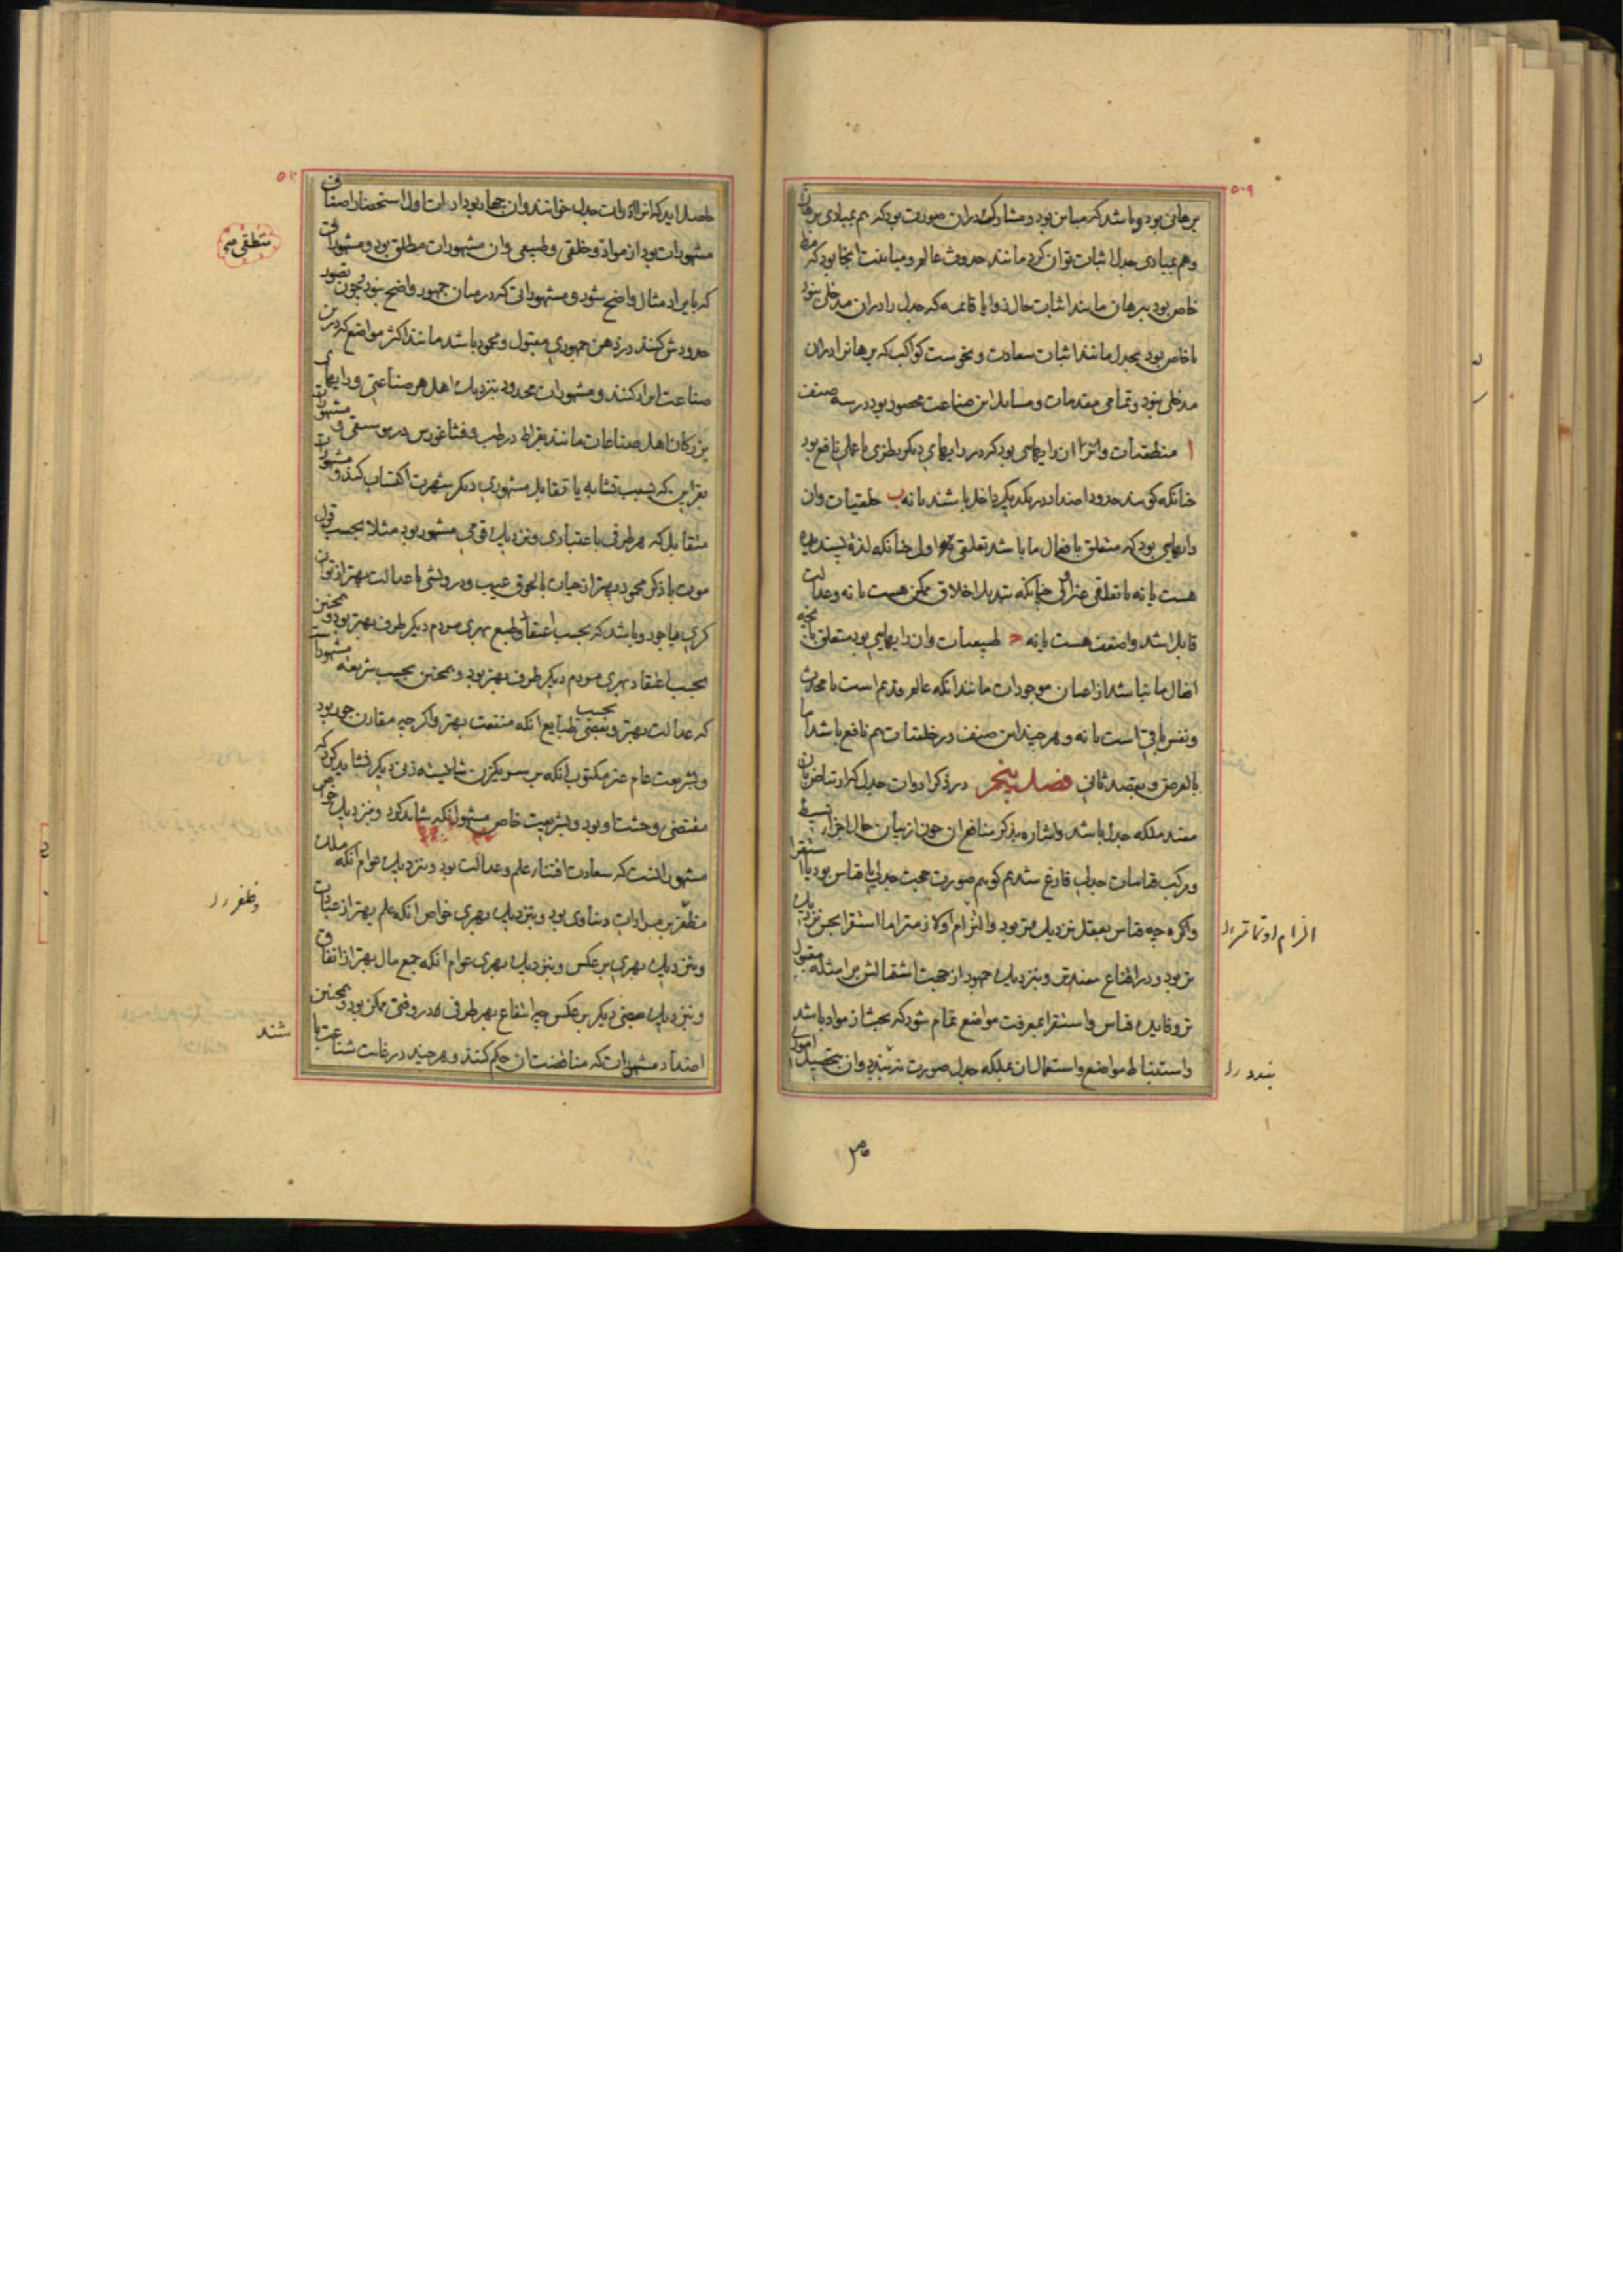 ۵۰۹
برهانی بود و باشد که مباین بود و مشارکت در آن صورت بود که هم بمبادی برهان
و هم بمبادی جدل اثبات توان کرد مانند حدوث عالم و مباینت آنجا بود که مط
خاص بود ببرهان مانند اثبات حال زوایا قائمه که جدل را در آن مدخلی نبود
یا خاص بود بجدل مانند اثبات سعادت و نحوست کواکب که برهانرا در آن
مدخلی نبود و تمامی مقدمات و مسایل این صناعت محصور بود در سه صنف
ا منطقیات و آن رایهایی بود که در رایهای دیگر نظری یا عملی نافع بود
چنانکه گویند حدود اضداد در یکدیگر داخل باشند یا نه ب خلقیات و آن
رایهایی بود که متعلق بافعال ما باشد تعلقی اول چنانکه لذة پسندیده
هست یا نه یا تعلقی غیر اولی چنانکه تبدیل اخلاق ممکن هست یا نه و عدالت
قابل اشد و اضعف هست یا نه ج طبیعیات و آن رایهایی بود متعلق بآنچه
افعال ما نباشد از اعیان موجودات مانند آنکه عالم قدیم است یا محدث
و نفس باقی است یا نه و هر چند این صنف در خلقیات هم نافع باشد اما
بالعرض و بقصد ثانی فصل پنجم در ذکر ادوات جدل که ارتیاض بآن
مفید ملکه جدل باشد و اشاره بذکر منافع آن چون از بیان حال اجزاء بسیط
و مرکب قیاسات جدلی فارغ شدیم گوییم صورت حجت جدلی یا قیاس بود یا استقرا
و اگر چه قیاس بعقل نزدیکتر بود و الزام او لازمتر اما استقرا بحس نزدیک
تر بود و در اقناع مفیدتر و بنزدیک جمهور از جهت اشتمالش بر امثله مقبول
تر و فایده قیاس و استقرا بمعرفت مواضع تمام شود که بمثابت مواد باشد
و استنباط مواضع و استعمال آن بملکه جدل صورت نبندد و آن بتحصیل اموری
الزام او تمامتر
بندد
۵۱۰
حاصل آید که آنرا ادوات جدل خوانند و آن چهار بود ادات اول استحضار اصناف
مشهورات بود از مواد و خلقی و طبیعی و آن مشهورات مطلق بود و مشهوراتی
که بایراد مثال واضح شود و مشهوراتی که در میان جمهور واضح نبود و چون تصور
حدودش کنند در ذهن جمهوری مقبول و محمود باشد مانند اکثر مواضع که درین
صناعت ایراد کنند و مشهورات محدود بنزدیک اهل هر صناعتی و رایهای
بزرگان اهل صناعات مانند بقراط در طب و فثاغورس در موسیقی و مشهورات
بقراین که بسبب تشابه یا تقابل مشهوری دیگر شهرت اکتساب کند و مشهورات
متقابل که هر طرفی باعتباری و نزدیک قومی مشهور بود مثلا بحسب قول
موت با ذکر محمود بهتر از حیات با لحوق عیب و درویشی با عدالت بهتر از توان
گری با جور و باشد که بحسب اعتقاد و طبع بهری مردم دیگر طرف بهتر بود و همچنین
بحسب اعتقاد بهری مردم دیگر طرف بهتر بود و همچنین بحسب شریعه مشهورات
که عدالت بهتر و بحسب بعضی طبایع آنکه منفعت بهتر و اگر چه مقارن جور بود
و بشریعت عام غیر مکتوب آنکه بر سر یکزن شایسته زنی دیگر نشاید کرد که
مقتضی وحشت او بود و بشریعت خاص مشهور آنکه شاید کرد و بنزدیک خواص
مشهور آنست که سعادت اقتناء علم و عدالت بود و بنزدیک عوام آنکه ملک
مظفر بر مرادات دنیاوی بود و بنزدیک بهری خواص آنکه علم بهتر از عبادت
و بنزدیک بهری بر عکس و بنزدیک بهری عوام آنکه جمع مال بهتر از انفاق
و بنزدیک بعضی دیگر بر عکس چه انتفاع بهر طرفی در وقتی ممکن بود و همچنین
اضداد مشهورات که مناقضت آن حکم کنند و هر چند در غایت شناعت با
منطقی
و ظفر
شند